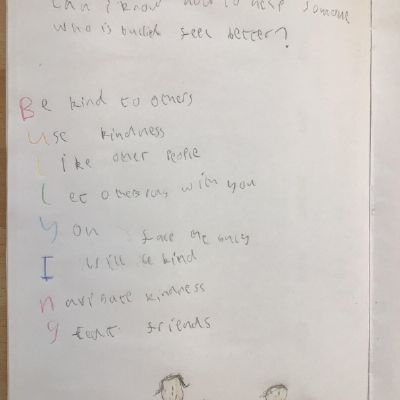 can i know how to help someone
who is bullied feel better?
Be kind to others
use kindness
like other people
Let others play with you
You
I will be kind
navigate kindness
friends